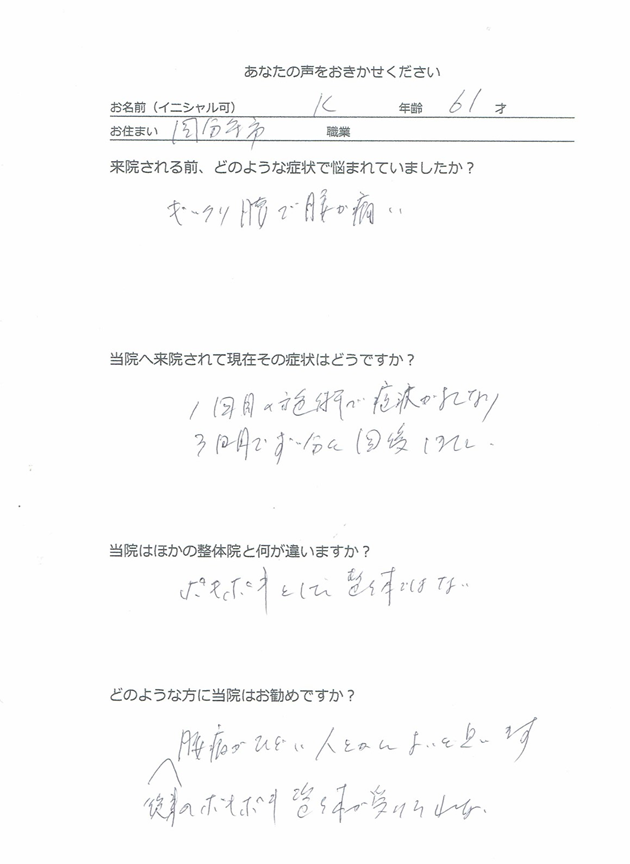 あなたの声をおきかせください
お名前（イニシャル可） K 年齢 61 才
お住まい 国分寺市 職業
来院される前、どのような症状で悩まれていましたか？
ギックリ腰で腰が痛い
当院へ来院されて現在その症状はどうですか？
1回目の施術で症状がよくなり
3回目でずい分と回後しました。
当院はほかの整体院と何が違いますか？
ボキボキとした整体ではない
どのような方に当院はお勧めですか？
腰痛がひどい人とかによいと思います
従来のボキボキ整体が受けられない